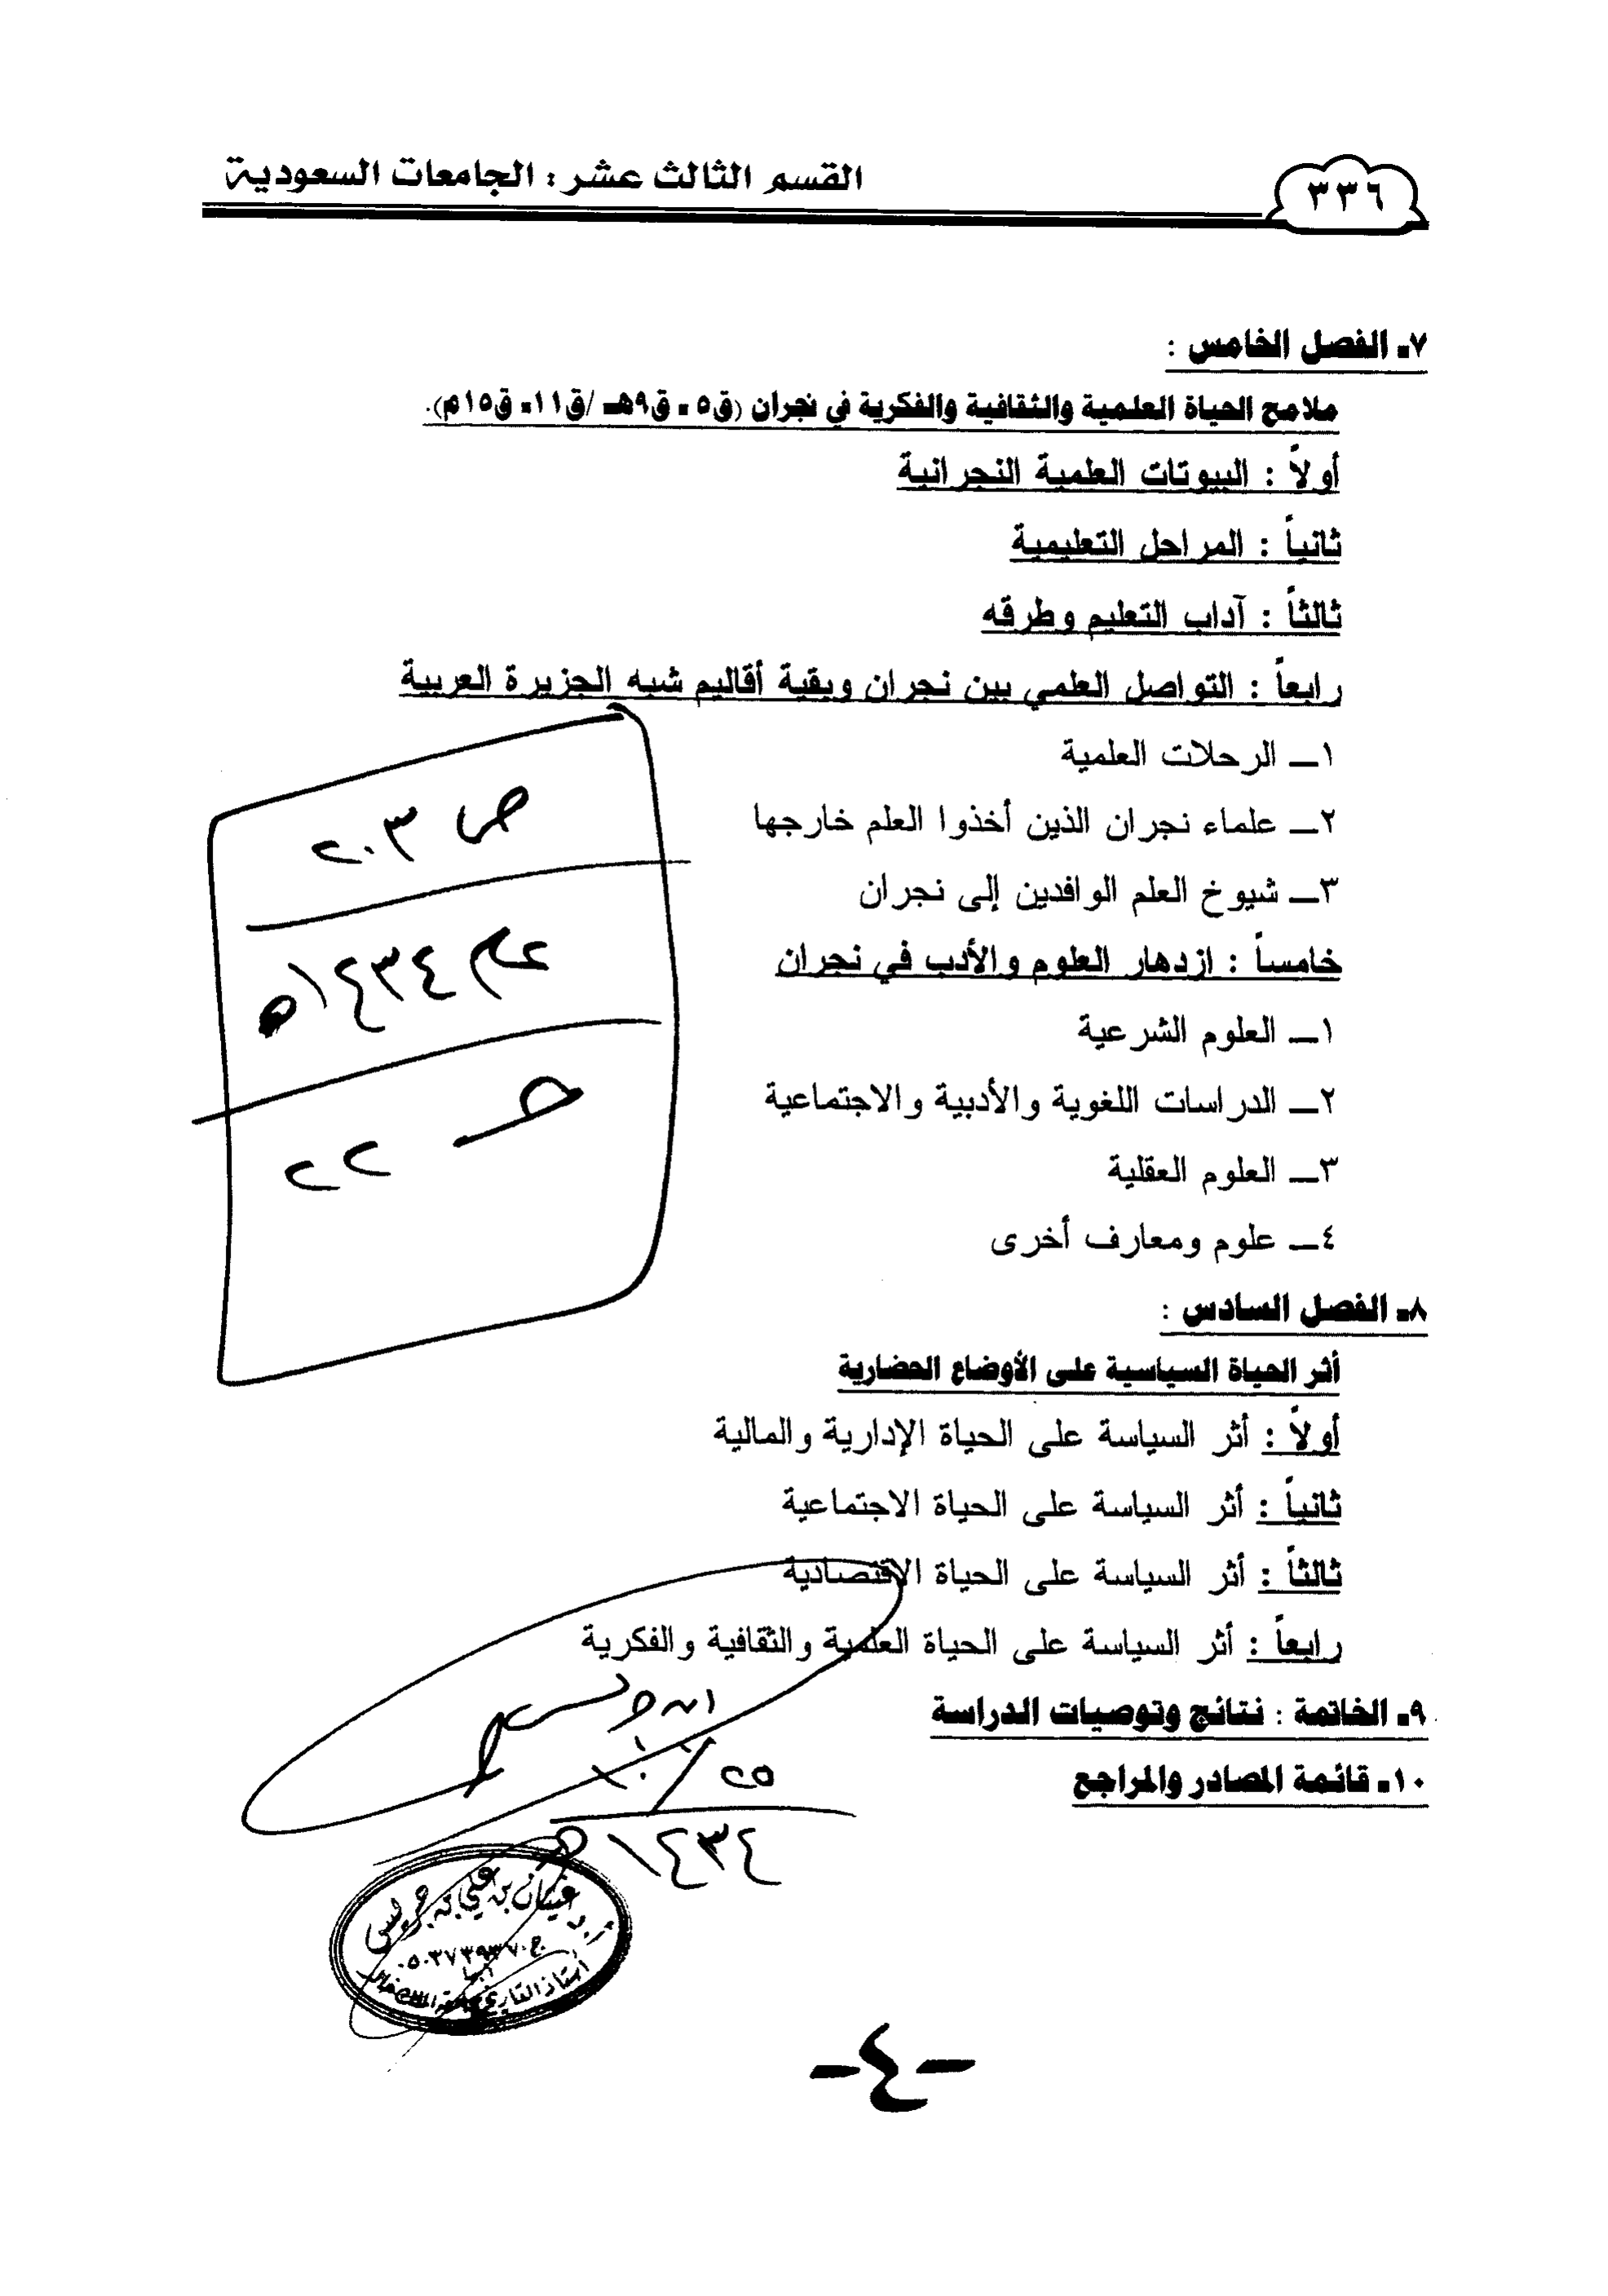 ٣٣٦
القسم الثالث عشر: الجامعات السعودية
٧ـ الفصل الخامس :
ملامح الحياة العلمية والثقافية والفكرية في نجران (ق٥ ـ ق٩هـ /ق١١ـ ق١٥م).
أولاً : البيوتات العلمية النجرانية
ثانياً : المراحل التعليمية
ثالثاً : آداب التعليم وطرقه
رابعاً : التواصل العلمي بين نجران وبقية أقاليم شبه الجزيرة العربية
١ــ الرحلات العلمية
٢ــ علماء نجران الذين أخذوا العلم خارجها
٣ــ شيوخ العلم الوافدين إلى نجران
خامساً : ازدهار العلوم والأدب في نجران
١ــ العلوم الشرعية
٢ــ الدراسات اللغوية والأدبية والاجتماعية
٣ــ العلوم العقلية
٤ــ علوم ومعارف أخرى
ص ٢٠٣
١٤٣٤هـ
٢٢
٨ـ الفصل السادس :
أثر الحياة السياسية على الأوضاع الحضارية
أولاً : أثر السياسة على الحياة الإدارية والمالية
ثانياً : أثر السياسة على الحياة الاجتماعية
ثالثاً : أثر السياسة على الحياة الاقتصادية
رابعاً : أثر السياسة على الحياة العلمية والثقافية والفكرية
٩ـ الخاتمة : نتائج وتوصيات الدراسة
١٠ـ قائمة المصادر والمراجع
٢٥/١٠
١٤٣٤هـ
أ.د غيثان بن علي بن جريس
ج٠٥٠٣٧٣٩٣٧٠
أبها
أستاذ التاريخ
-٤-